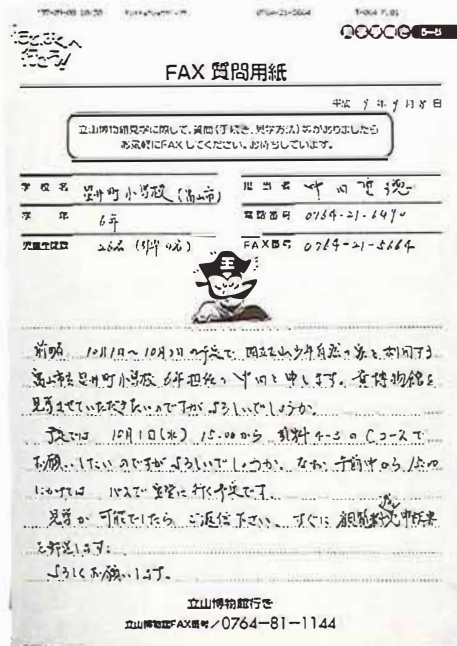 はくぶつかんへ
行こう!
5-5
FAX 質問用紙
平成 9年 9月 8日
立山博物館見学に際して、質問(手続き、見学方法)等がありましたら
お気軽にFAXしてください。お待ちしています。
学校名 星井町小学校 (富山市)
担当者 中田
学年 6年
電話番号 0764-21-6490
児童生徒数
FAX番号 0764-21-5664
前略 10月1日~10月3日の予定で 国立立山少年自然の家を利用する
富山市立星井町小学校 6年担任の 中田と申します。貴博物館を
見学させていただきたいのですが よろしいでしょうか。
予定では 10月1日(水) 15:00から 資料4-3の Cコースで
お願いしたいのですが よろしいでしょうか。なお、午前中から
にかけては バスで室堂に行く予定です。
見学が可能でしたら ご返信下さい。すぐに 観覧料 申請書
を郵送します。
よろしくお願いします。
立山博物館行き
立山博物館FAX番号/0764-81-1144